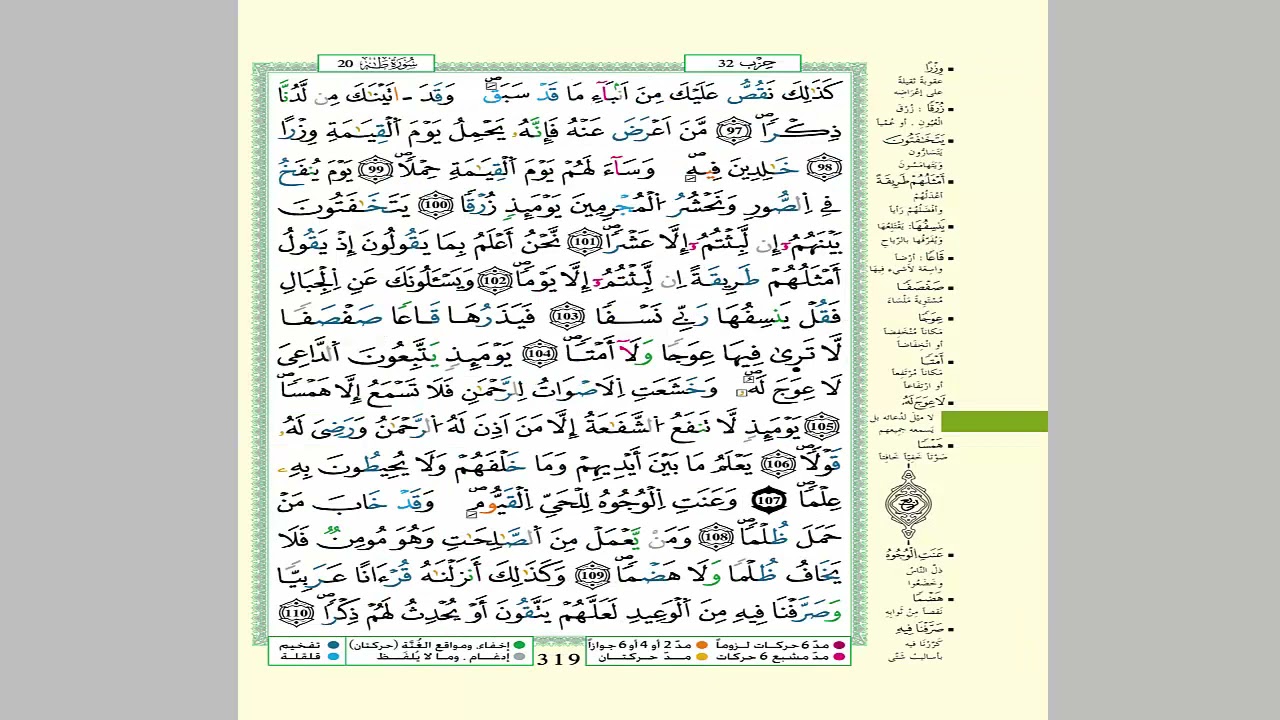 سُورَةُ طَهَ 20
حِزْب 32
كَذَٰلِكَ نَقُصُّ عَلَيْكَ مِنَ اَنۢبَآءِ مَا قَدْ سَبَقَۖ وَقَدَ ـ اتَيْنَٰكَ مِن لَّدُنَّا
ذِكْراٗۖ 97 مَّنَ اَعْرَضَ عَنْهُ فَإِنَّهُۥ يَحْمِلُ يَوْمَ اَ۬لْقِيَٰمَةِ وِزْراً
98 خَٰلِدِينَ فِيهِۖ وَسَآءَ لَهُمْ يَوْمَ اَ۬لْقِيَٰمَةِ حِمْلاٗۖ 99 يَوْمَ يُنفَخُ
فِے اِ۬لصُّورِ وَنَحْشُرُ اُ۬لْمُجْرِمِينَ يَوْمَئِذٖ زُرْقاٗ 100 يَتَخَٰفَتُونَ
بَيْنَهُمُۥٓ إِن لَّبِثْتُمُۥٓ إِلَّا عَشْراٗۖ 101 نَّحْنُ أَعْلَمُ بِمَا يَقُولُونَ إِذْ يَقُولُ
أَمْثَلُهُمْ طَرِيقَةً اِن لَّبِثْتُمُۥٓ إِلَّا يَوْماٗۖ 102 وَيَسْـَٔلُونَكَ عَنِ اِ۬لْجِبَالِ
فَقُلْ يَنسِفُهَا رَبِّے نَسْفاٗ 103 فَيَذَرُهَا قَاعاٗ صَفْصَفاٗ
لَّا تَر۪ىٰ فِيهَا عِوَجاٗ وَلَآ أَمْتاٗۖ 104 يَوْمَئِذٖ يَتَّبِعُونَ اَ۬لدَّاعِيَ
لَا عِوَجَ لَهُۥۖ وَخَشَعَتِ اِ۬لَاصْوَاتُ لِلرَّحْمَٰنِ فَلَا تَسْمَعُ إِلَّا هَمْساٗۖ
105 يَوْمَئِذٖ لَّا تَنفَعُ اُ۬لشَّفَٰعَةُ إِلَّا مَنَ اَذِنَ لَهُ اُ۬لرَّحْمَٰنُ وَرَضِيَ لَهُۥ
قَوْلاٗۖ 106 يَعْلَمُ مَا بَيْنَ أَيْدِيهِمْ وَمَا خَلْفَهُمْ وَلَا يُحِيطُونَ بِهِۦ
عِلْماٗۖ 107 وَعَنَتِ اِ۬لْوُجُوهُ لِلْحَيِّ اِ۬لْقَيُّومِۖ وَقَدْ خَابَ مَنْ
حَمَلَ ظُلْماٗۖ 108 وَمَنْ يَّعْمَلْ مِنَ اَ۬لصَّٰلِحَٰتِ وَهُوَ مُومِنٞ فَلَا
يَخَافُ ظُلْماٗ وَلَا هَضْماٗۖ 109 وَكَذَٰلِكَ أَنزَلْنَٰهُ قُرْءَاناً عَرَبِيّاٗ
وَصَرَّفْنَا فِيهِ مِنَ اَ۬لْوَعِيدِ لَعَلَّهُمْ يَتَّقُونَ أَوْ يُحْدِثُ لَهُمْ ذِكْراٗۖ 110
وِزْرًا
عقوبةً ثقيلةً
على إعْرَاضِه
زُرْقًا : زُرْقَ
الْعُيُونِ . أو عُمْياً
يَتَخَٰفَتُونَ
يَتَسَارُّونَ
وَيَتَهامَسُونَ
أَمْثَلُهُمْ طَرِيقَةً
أعْدَلُهُمْ
وأفْضَلُهُمْ رَأْياً
يَنسِفُهَا: يَقْتَلِعُهَا
وَيُفَرِّقُهَا بالرِّيَاحِ
قَاعًا : أَرْضا
واسِعَةً لاشيء فِيهَا
صَفْصَفًا
مُسْتَوِيةً مَلْسَاءَ
عِوَجًا
مَكاناً مُنْخَفِضاً
أو انْخِفَاضاً
أَمْتًا
مَكاناً مُرْتفِعاً
أو ارْتِفَاعاً
لَا عِوَجَ لَهُۥ
لا مَيْلَ لدُعَائه بل
يَسمعه جميعهم
هَمْسًا
صَوْتاً خَفِيّاً خَافِتاً
ربع
عَنَتِ الْوُجُوهُ
ذلَّ النَّاسُ
وخَضَعُوا
هَضْمًا
نَقصاً مِنْ ثَوابِهِ
صَرَّفْنَا فِيهِ
كَرَّرْنَا فيه
بأساليبَ شَتَّى
مدّ 6 حركات لـزوماً مدّ 2 أو 4 أو 6 جوازاً
مدّ مشبع 6 حركات مـدّ حركتـان
319
إخفاء، ومواقع الغُنَّة (حركتان) تفخيم
إدغـام ، ومـا لا يُلفَـظ قلقلة